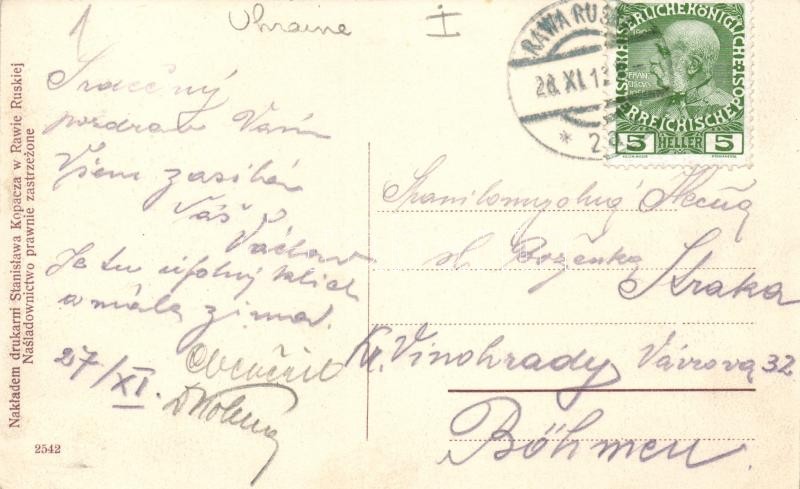 Ukraine
I
1
RAWA RUSKA
28.XI.13
* 2
KAISERLICHE KÖNIGLICHE
ÖSTERREICHISCHE POST
1908
FRANZ JOSEF
5 HELLER 5
Srdečný
pozdrav Vám
Všem zasílá
Váš
Václav
Je tu úplný klid
a málo zima.
27/XI.
sl. Boženka
Straka
Kr. Vinohrady Vávrova 32
Böhmen.
Nakładem drukarni Stanisława Kopacza w Rawie Ruskiej
Naśladownictwo prawnie zastrzeżone
2542